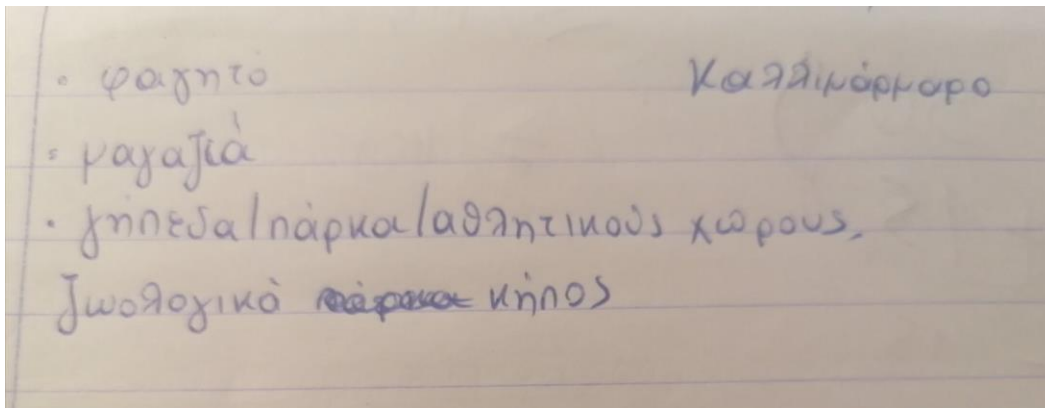 · φαγητό Καλλιμάρμαρο
· μαγαζιά
· γήπεδα/πάρκα/αθλητικούς χώρους,
ζωολογικό κήπος